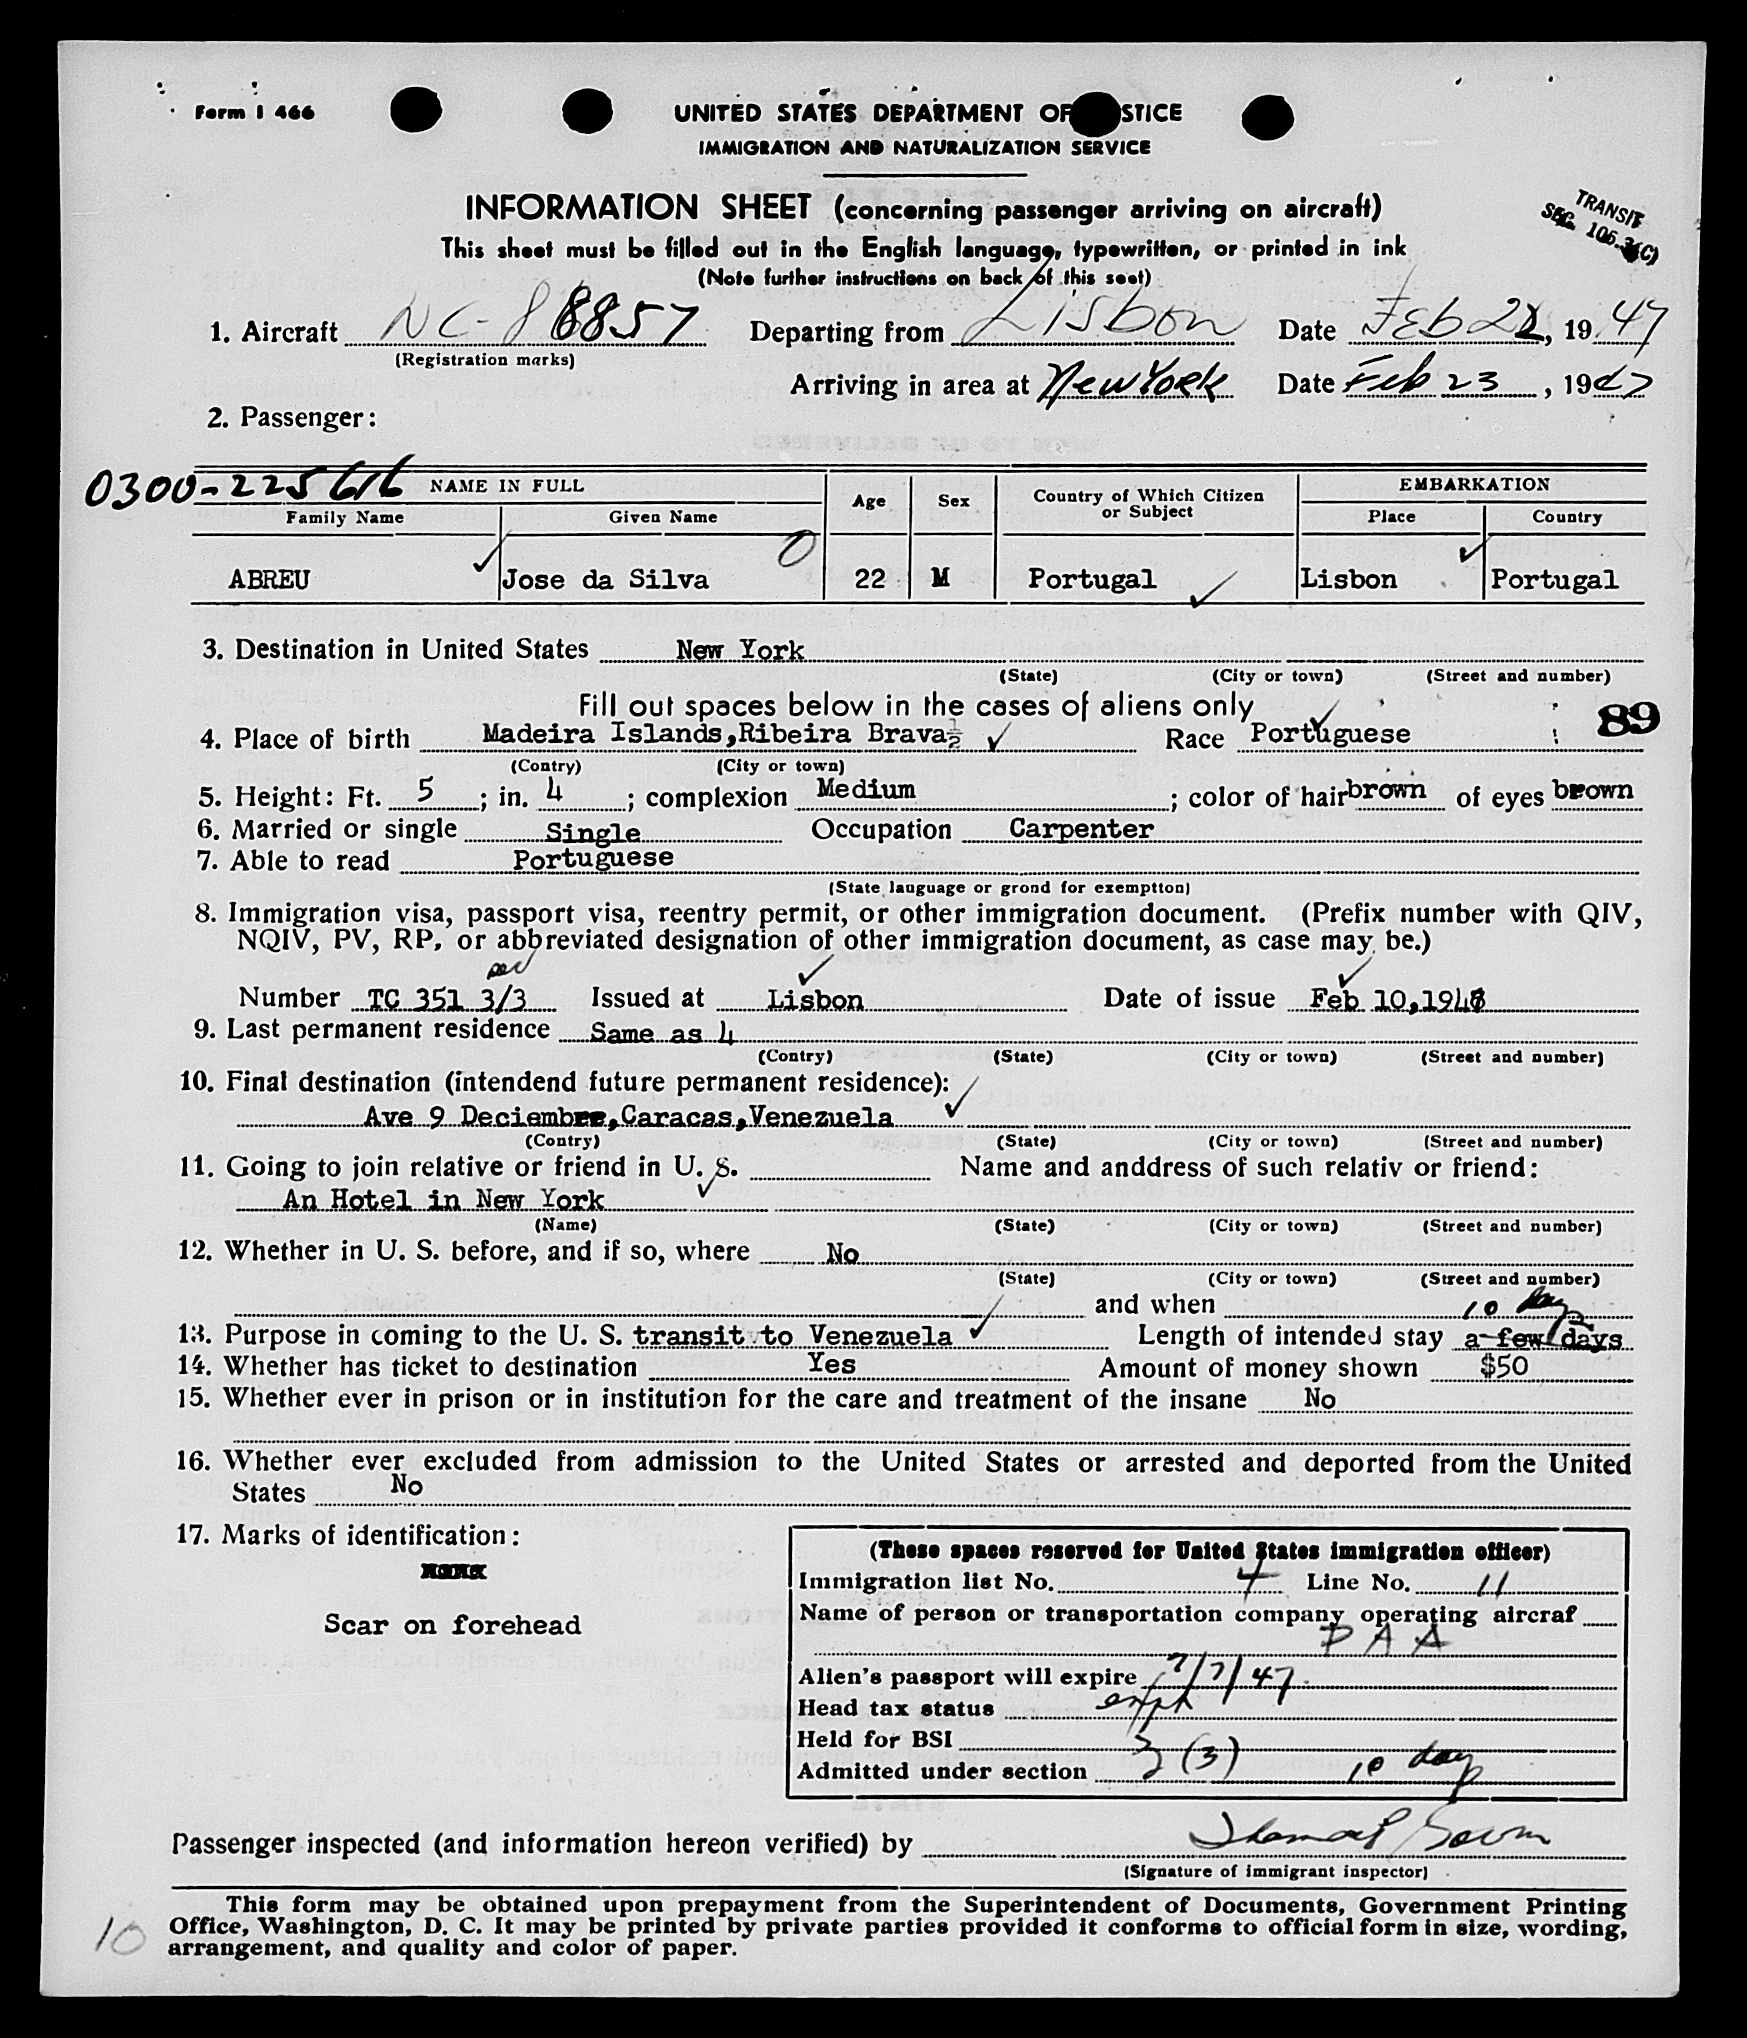 Form I 466
UNITED STATES DEPARTMENT OF STICE
IMMIGRATION AND NATURALIZATION SERVICE
INFORMATION SHEET (concerning passenger arriving on aircraft)
TRANSIT
SEC. 105.3(C)
This sheet must be filled out in the English language, typewritten, or printed in ink
(Note further instructions on back of this seet)
1. Aircraft NC-88857 Departing from Lisbon Date Feb 22, 1947
(Registration marks)
Arriving in area at New York Date Feb 23, 1947
2. Passenger:
0300-225616 NAME IN FULL Age Sex Country of Which Citizen or Subject EMBARKATION
Family Name Given Name Place Country
ABREU Jose da Silva 0 22 M Portugal Lisbon Portugal
3. Destination in United States New York
(State) (City or town) (Street and number)
Fill out spaces below in the cases of aliens only
89
4. Place of birth Madeira Islands,Ribeira Brava½ Race Portuguese
(Contry) (City or town)
5. Height: Ft. 5; in. 4; complexion Medium; color of hair brown of eyes brown
6. Married or single Single Occupation Carpenter
7. Able to read Portuguese
(State lauguage or grond for exemptton)
8. Immigration visa, passport visa, reentry permit, or other immigration document. (Prefix number with QIV,
NQIV, PV, RP, or abbreviated designation of other immigration document, as case may be.)
Number TC 351 3/3 Issued at Lisbon Date of issue Feb 10,194
9. Last permanent residence Same as 4
(Contry) (State) (City or town) (Street and number)
10. Final destination (intendend future permanent residence):
Ave 9 Deciembre,Caracas,Venezuela
(Contry) (State) (City or town) (Street and number)
11. Going to join relative or friend in U. S. Name and anddress of such relativ or friend:
An Hotel in New York
(Name) (State) (City or town) (Street and number)
12. Whether in U. S. before, and if so, where No
(State) (City or town) (Street and number)
and when
10 days
13. Purpose in coming to the U. S. transit to Venezuela Length of intended stay a few days
14. Whether has ticket to destination Yes Amount of money shown $50
15. Whether ever in prison or in institution for the care and treatment of the insane No
16. Whether ever excluded from admission to the United States or arrested and deported from the United
States No
17. Marks of identification:
Scar on forehead
(These spaces reserved for United States immigration officer)
Immigration list No. 4 Line No. 11
Name of person or transportation company operating aircraf
PAA
Alien's passport will expire 7/7/47
Head tax status exph
Held for BSI
Admitted under section 3 (3) 10 days
Passenger inspected (and information hereon verified) by
(Signature of immigrant inspector)
This form may be obtained upon prepayment from the Superintendent of Documents, Government Printing
Office, Washington, D. C. It may be printed by private parties provided it conforms to official form in size, wording,
arrangement, and quality and color of paper.
10